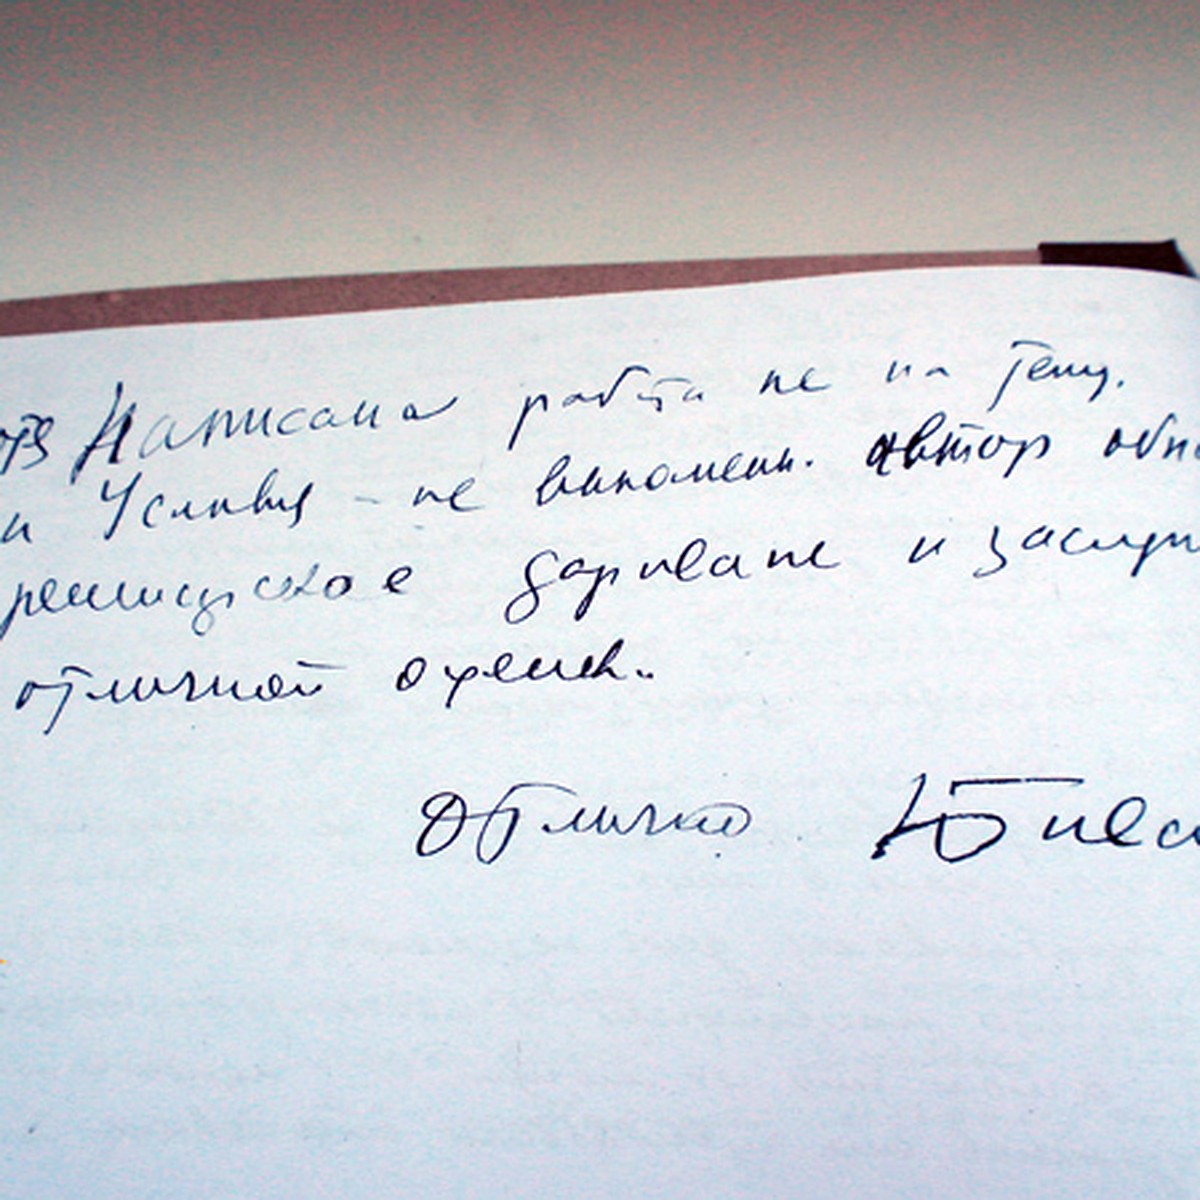 Написана работа не на тему.
и Условия - не выполнены. автор обна
режиссерское дарование и заслужи
отличной оценки.
Отлично